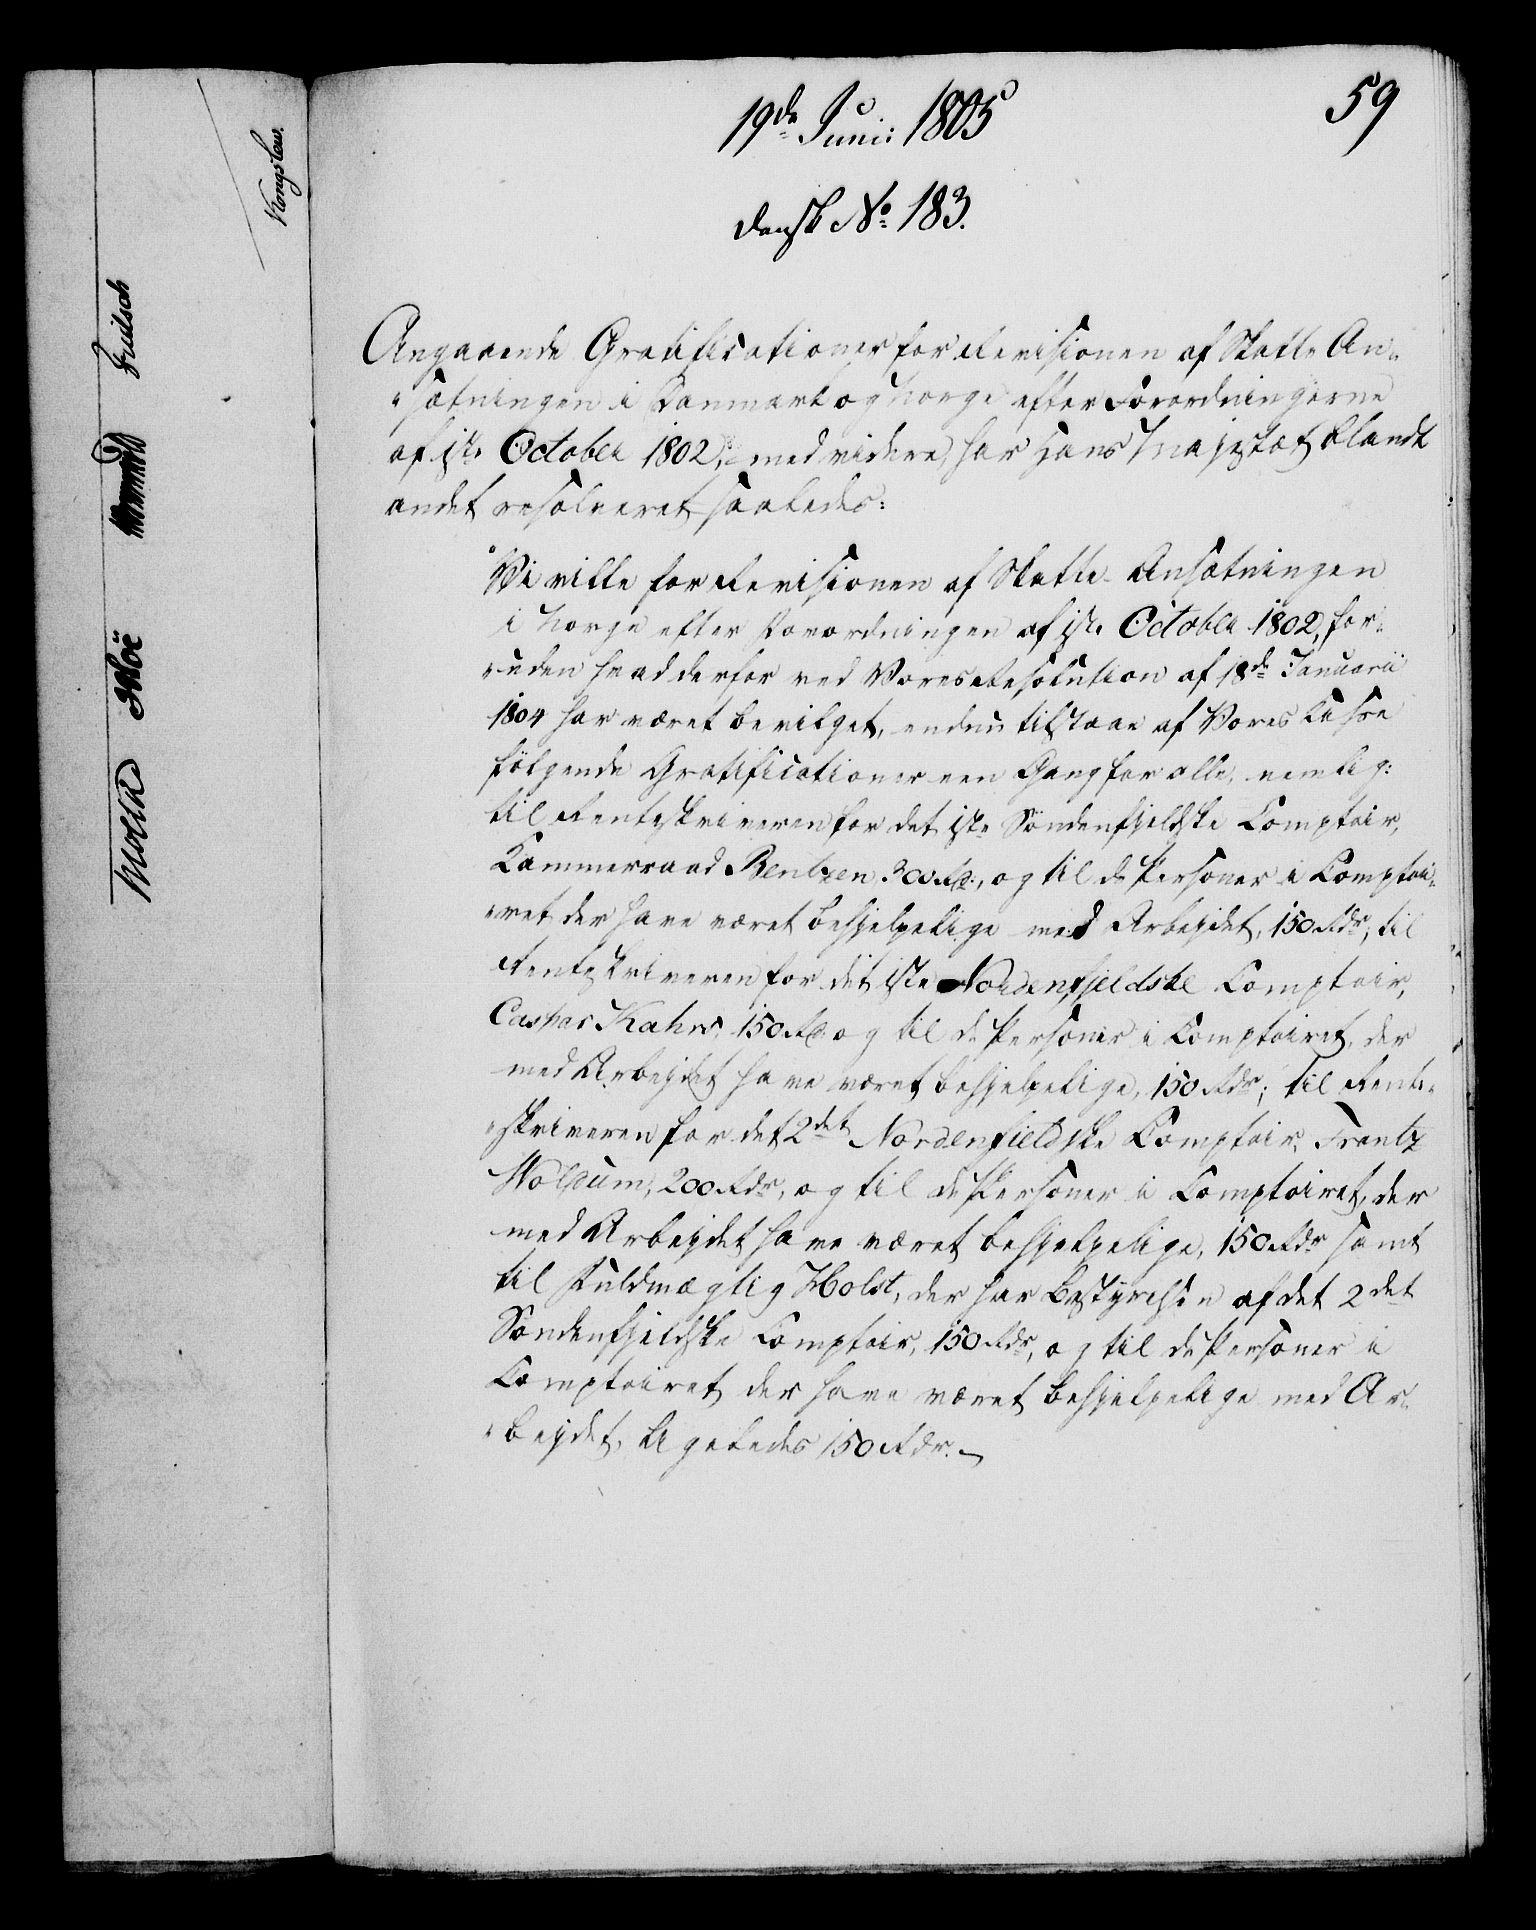 59
19de Junii 1805
dansk No 183.
Angaaende Gratificationer for Revisionen af Skatte An-
sætningen i Danmark og Norge efter Forordningerne
af 1ste October 1802, med videre, har Hans Majestæt blandt
andet resolveret saaledes:
Vi ville for Revisionen af Skatte-Ansætningen
i Norge efter Forordningen af 1ste October 1802, for-
uden hvad derfor ved Vores Resolution af 18de Januarii
1804 har været bevilget, endnu tilstaae af Vores Casse
følgende Gratificationer een Gang for alle, nemlig:
til Renteskriveren for det 1ste Søndenfjeldske Comptoir,
Kammerraad Bentzen, 300 Rd., og til de Personer i Comptoi-
ret der have været behjelpelige med Arbejdet, 150 Rdr; til
Renteskriveren for det 1ste Nordenfjeldske Comptoir,
Caspar Kahrs, 150 Rd. og til de Personer i Comptoiret, der
med Arbejdet have været behjelpelige, 150 Rdr; til Rente-
skriveren for det 2det Nordenfieldske Comptoir, Frantz
Woldum, 200 Rdr, og til de Personer i Comptoiret, der
med Arbejdet have været behjelpelige, 150 Rdr samt
til Fuldmægtig Holst, der har Bestyrelsen af det 2det
Søndenfjeldske Comptoir, 150 Rdr, og til de Personer i
Comptoiret der have været behjelpelige med Ar-
bejdet, ligeledes 150 Rdr.
Moltke Moe Fritsch
Kongslew